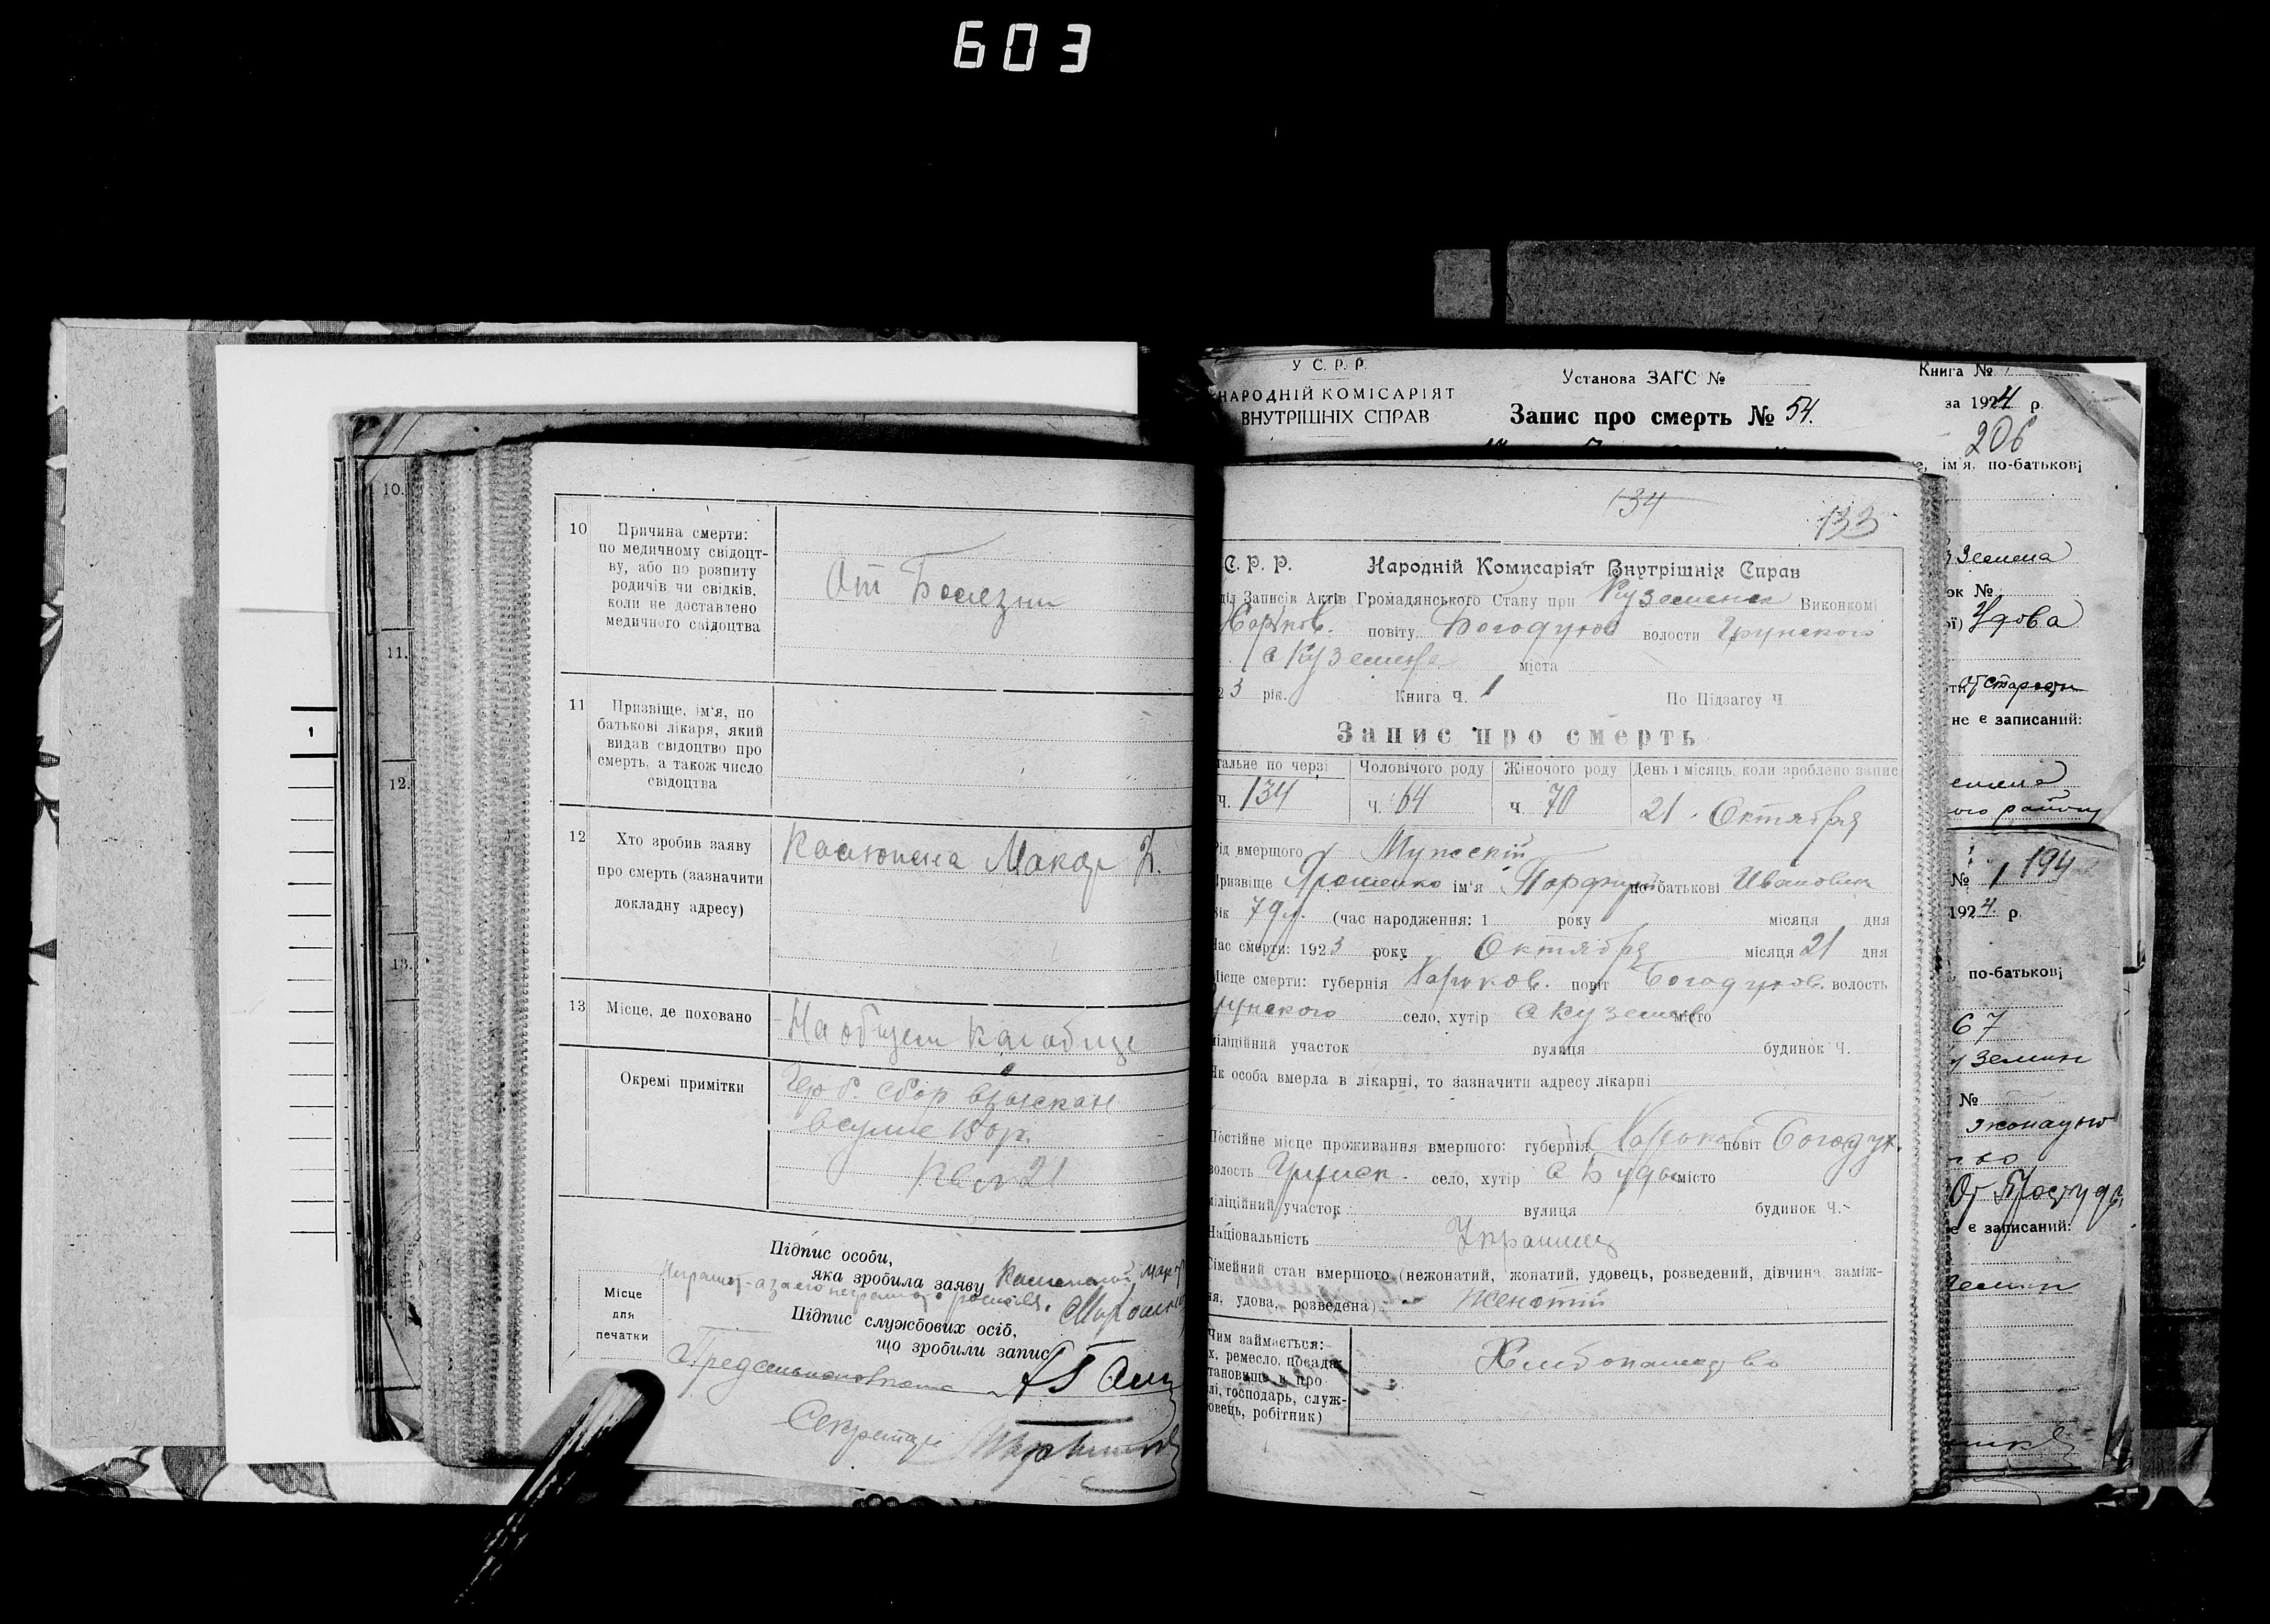 603
10.
11.
12.
13.
1
10 Причина смерти:
по медичному свідоцт-
ву, або по розпиту
родичів чи свідків,
коли не доставлено
медичного свідоцтва
От Болезни
11 Призвіще, ім'я, по
батькові лікаря, який
видав свідоцтво про
смерть, а також число
свідоцтва
12 Хто зробив заяву
про смерть (зазначити
докладну адресу)
Макар
13 Місце, де поховано
На общем кладбище
Окремі примітки
Герб. сбор взыскан
в сумме 180 р.
Кв № 21
Підпис особи,
яка зробила заяву
Підпис службових осіб,
що зробили запис
Місце
для
печатки
Секретарь
У С. Р. Р.
НАРОДНІЙ КОМІСАРІЯТ
ВНУТРІШНІХ СПРАВ
Установа ЗАГС №
Запис про смерть № 54.
Книга №
за 1924 р.
206
ім'я, по-батькові
134
133
С. Р. Р. Народній Комисаріят Внутрішніх Справ
діл Записів Актів Громадянського Стану при Куземене Виконкомі
Харьков. повіту Богодухов волости Грунского
с Куземене міста
23 рік. Книга Ч. 1 По Підзагсу Ч.
Запис про смерть
гальне по черзі Чоловічого роду Жіночого роду День і місяць, коли зроблено запис
ч. 134 ч. 64 ч. 70 21 Октября
Рід вмершого Мужской
Призвіще Ярошенко ім'я Порфирий по батькові Иванович
Вік 79 л. (час народження: 1 року місяця дня
Час смерти: 1923 року Октября місяця 21 дня
Місце смерти: губернія Харьков. повіт Богодухов. волость
Грунского село, хутір с Куземен місто
міліційний участок вулиця будинок Ч.
Як особа вмерла в лікарні, то зазначити адресу лікарні
Постійне місце проживання вмершого: губернія Харьков повіт Богодух.
волость Грунск. село, хутір с Буды місто
міліційний участок вулиця будинок Ч.
Національність Украинец
Сімейний стан вмершого (нежонатий, жонатий, удовець, розведений, дівчина, заміж-
ня, удова, розведена) Женатий
Чим займається:
х, ремесло, посада,
становище в про
лі, господарь, служ-
бовець, робітник)
Хлебопашество
ок №
Удова
не є записаний:
194
№ 1
1924 р.
по-батькові
67
№
От Простуды
є записаний: